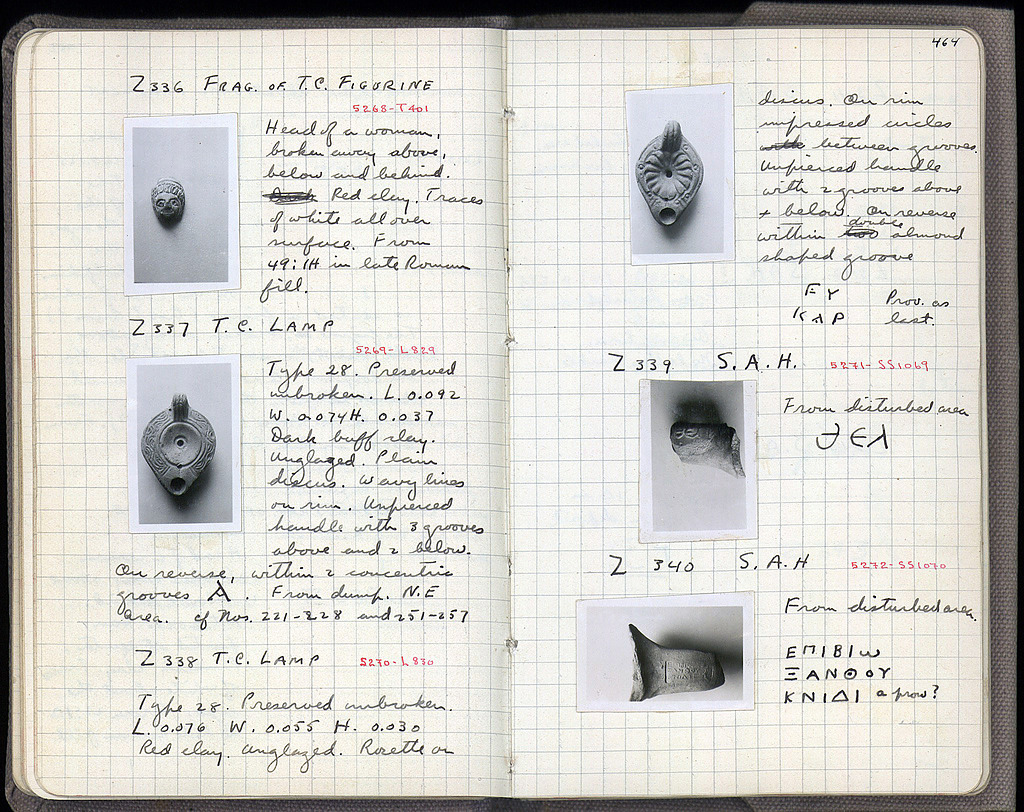 Z 336 FRAG. OF T.C. FIGURINE
5268-T401
Head of a woman,
broken away above,
below and behind.
Red clay. Traces
of white all over
surface. From
49:IH in late Roman
fill.
Z 337 T.C. LAMP
5269-L829
Type 28. Preserved
unbroken. L. 0.092
W. 0.074 H. 0.037
Dark buff clay.
Unglazed. Plain
discus. Wavy lines
on rim. Unpierced
handle with 3 grooves
above and 2 below.
On reverse, within 2 concentric
grooves A. From dump. N.E
area. cf Nos. 221-228 and 251-257
Z 338 T.C. LAMP 5270-L830
Type 28. Preserved unbroken.
L. 0.076 W. 0.055 H. 0.030
Red clay. Unglazed. Rosette on
464
discus. On rim
impressed circles
with between grooves.
Unpierced handle
with 2 grooves above
+ below. On reverse
within two double almond
shaped groove
ΕΥ Prov. as
ΚΑΡ last.
Z 339 S.A.H. 5271-SS1069
From disturbed area
ϑ Ε λ
Z 340 S.A.H 5272-SS1070
From disturbed area.
ΕΠΙΒΙω
ΞΑΝΘΟΥ
ΚΝΙΔΙ a prow?